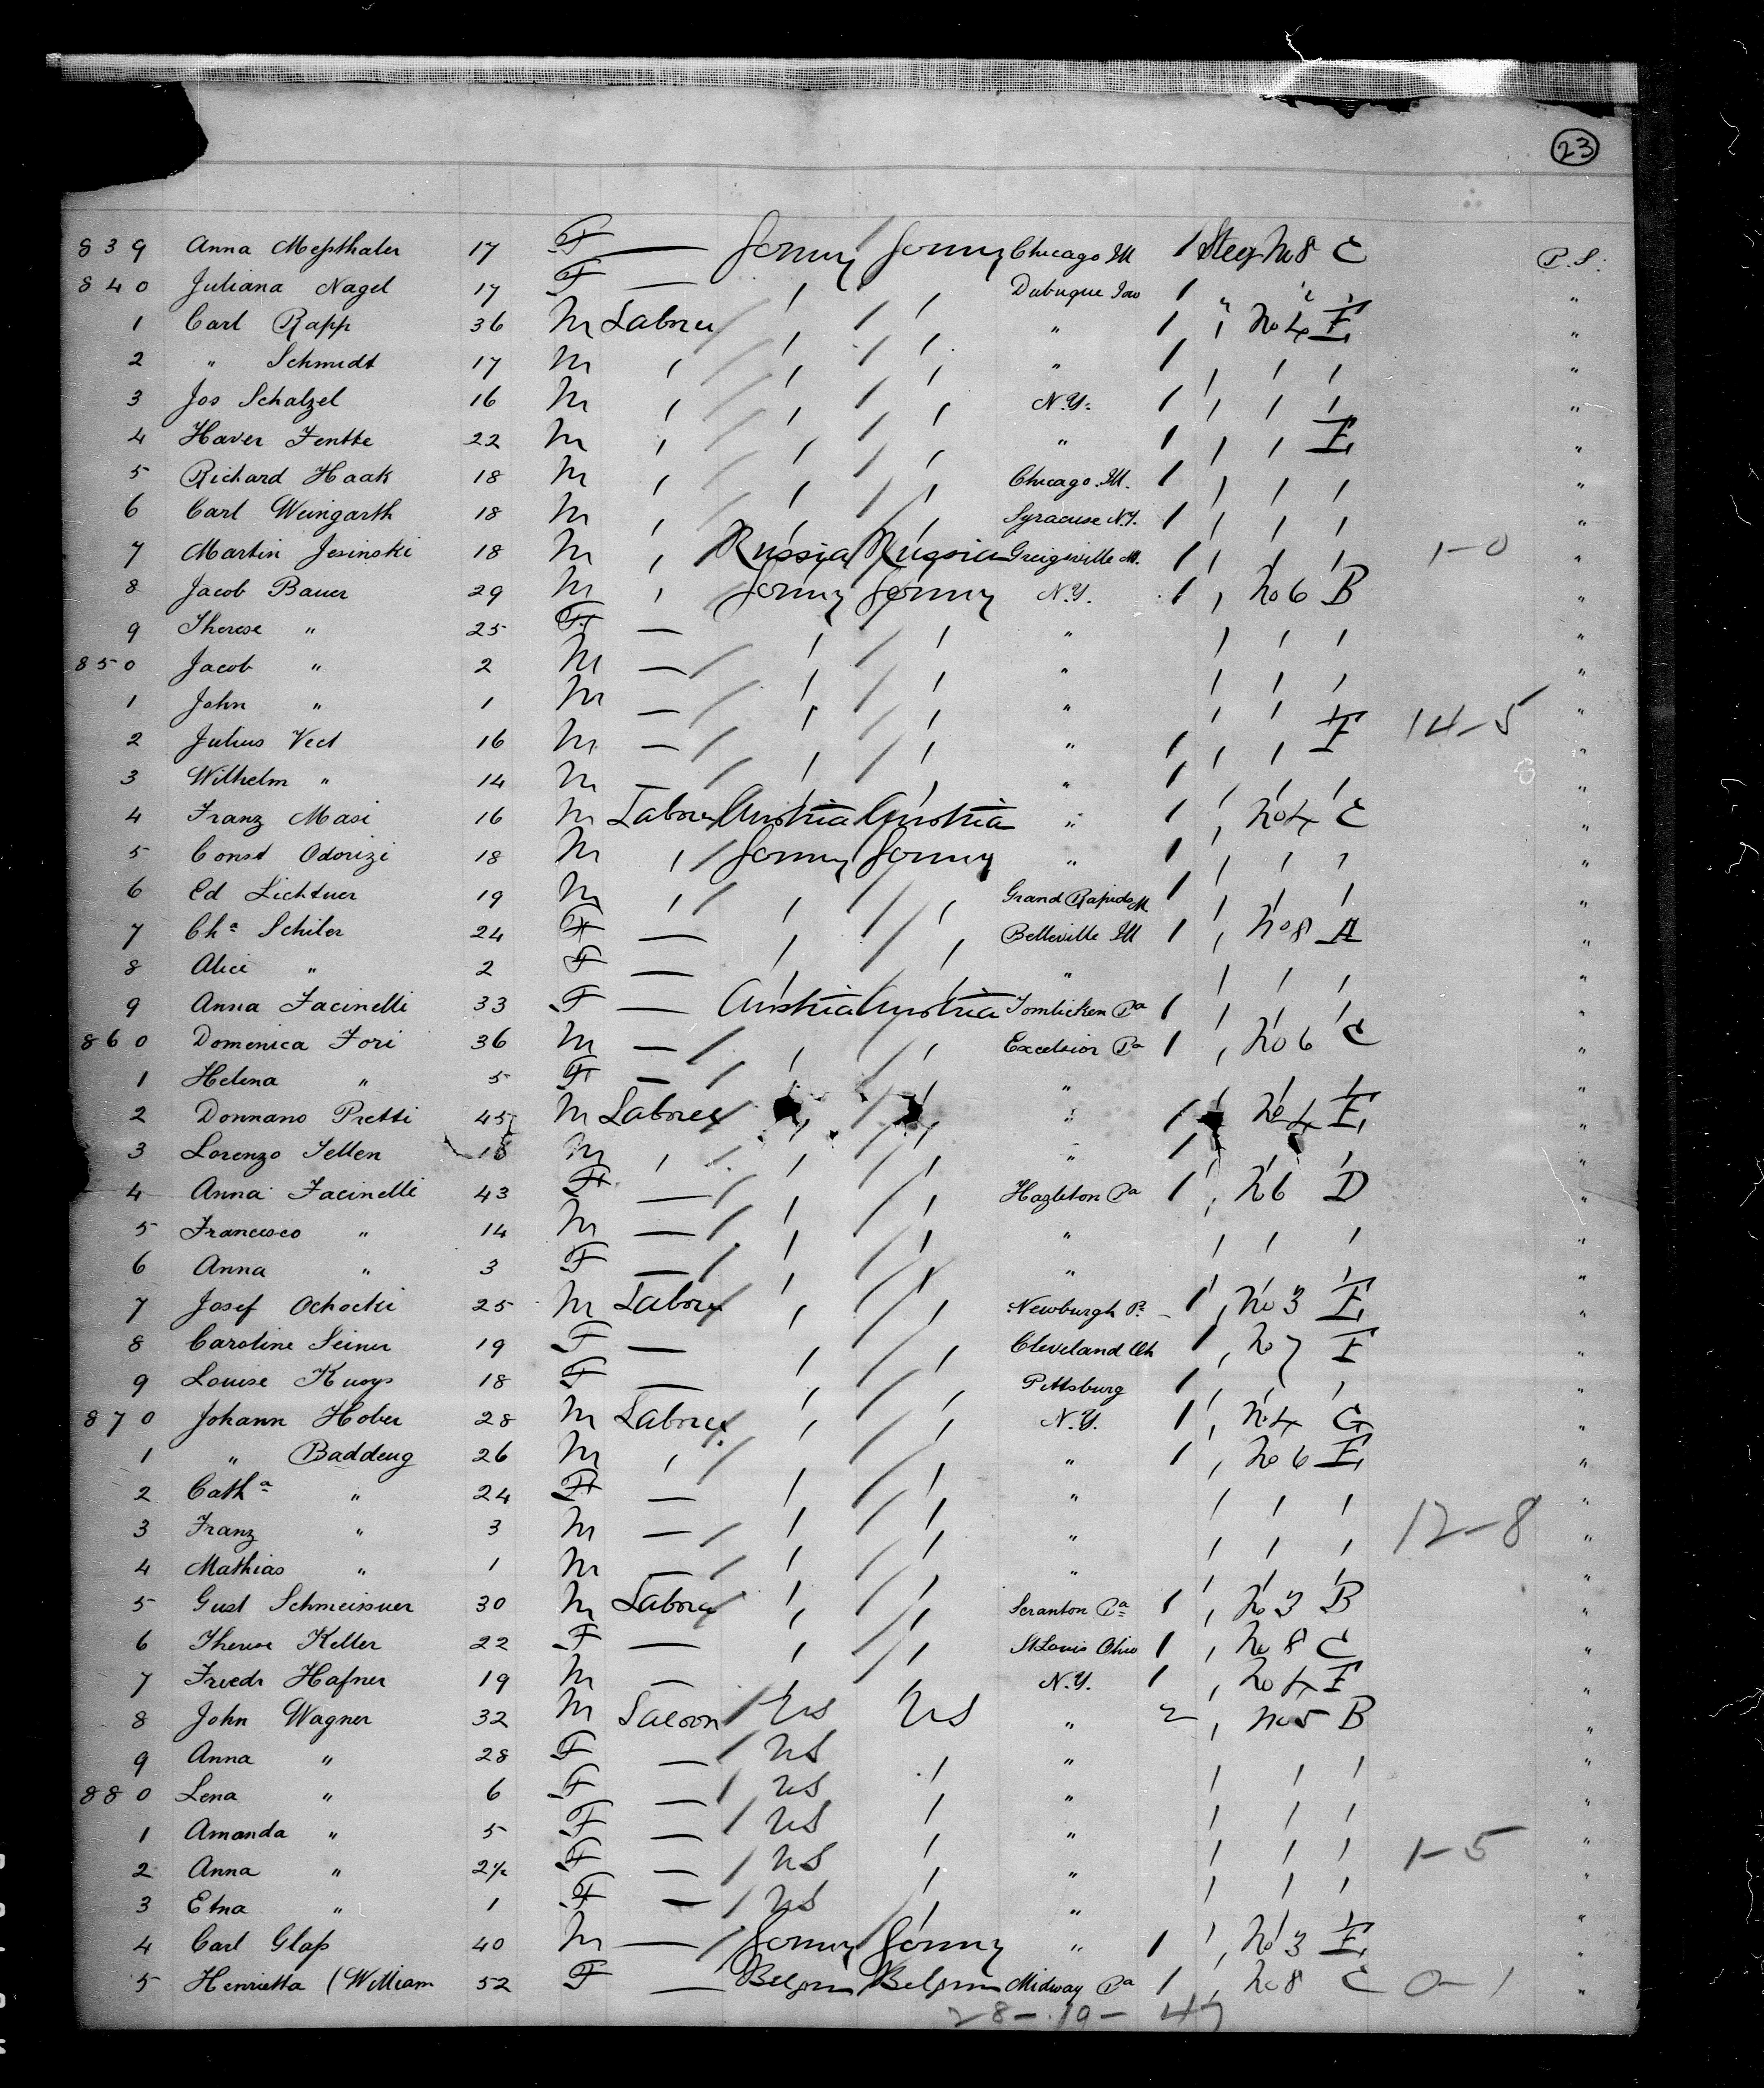 23
839 Anna Meßthaler 17 F — Germy Germy Chicago Ill 1 Steeg No 8 C P.S.
840 Juliana Nagel 17 F — " " Dubuque Iow 1 " " " "
1 Carl Rapp 36 M Laborer " " " 1 " No 4 E "
2 " Schmidt 17 M " " " " 1 " " " "
3 Jos Schalzel 16 M " " " N.Y. 1 " " " "
4 Haver Fentke 22 M " " " " 1 " " E "
5 Richard Haak 18 M " " " Chicago Ill. 1 " " " "
6 Carl Weingarth 18 M " " " Syracuse N.Y. 1 " " " "
7 Martin Jesinski 18 M " Russia Russia Greigsville 1 " " " 1-0 "
8 Jacob Bauer 29 M " Germy Germy N.Y. 1 " No 6 B "
9 Therese " 25 F — " " " " " " "
850 Jacob " 2 M — " " " " " " "
1 John " 1 M — " " " " " " "
2 Julius Veet 16 M — " " " 1 " " E 14-5 "
3 Wilhelm " 14 M — " " " 1 " " " "
4 Franz Masi 16 M Laborer Austria Austria " 1 " No 4 C "
5 Const Odorizi 18 M " Germy Germy " 1 " " " "
6 Ed Lichtner 19 M " " " Grand Rapids M 1 " " " "
7 Cha Schiler 24 F — " " Belleville Ill 1 " No 8 A "
8 Alice " 2 F — " " " " " " "
9 Anna Facinelli 33 F — Austria Austria Tomhicken Pa 1 " " " "
860 Domenica Fori 36 M — " " Excelsior Pa 1 " No 6 C "
1 Helena " 5 F — " " " "
2 Donnano Pretti 45 M Laborer " " " 1 " No 4 E "
3 Lorenzo Tellen 18 M " " " " 1 "
4 Anna Facinelli 43 F — " " Hazleton Pa 1 " No 6 D "
5 Francesco " 14 M — " " " " " " "
6 Anna " 3 F — " " " "
7 Josef Ochocki 25 M Laborer " " Newburgh P. 1 " No 3 E "
8 Caroline Seiner 19 F — " " Cleveland Oh 1 " No 7 E "
9 Louise Kuoys 18 F — " " Pittsburg 1 " " " "
870 Johann Hober 28 M Laborer " " N.Y. 1 " No 4 G "
1 " Baddeug 26 M " " " " 1 " No 6 E "
2 Catha " 24 F — " " " " " " "
3 Franz " 3 M — " " " " " " 12-8 "
4 Mathias " 1 M — " " " " " " "
5 Gust Schmeissner 30 M Laborer " " Scranton Pa 1 " No 3 B "
6 Therese Keller 22 F — " " St Louis Ohio 1 " No 8 C "
7 Friedr Hafner 19 M — " " N.Y. 1 " No 4 E "
8 John Wagner 32 M Saloon US US " 2 " No 5 B "
9 Anna " 28 F — US " " " " " "
880 Lena " 6 F — US " " " " " "
1 Amanda " 5 F — US " " " " " "
2 Anna " 2½ F — US " " " " " 1-5 "
3 Etna " 1 F — US " " " " " "
4 Carl Glaß 40 M — Germy Germy " 1 " No 3 E "
5 Henrietta (William 52 F — Belgm Belgm Midway Pa 1 " No 8 C 0-1 "
28-19-47